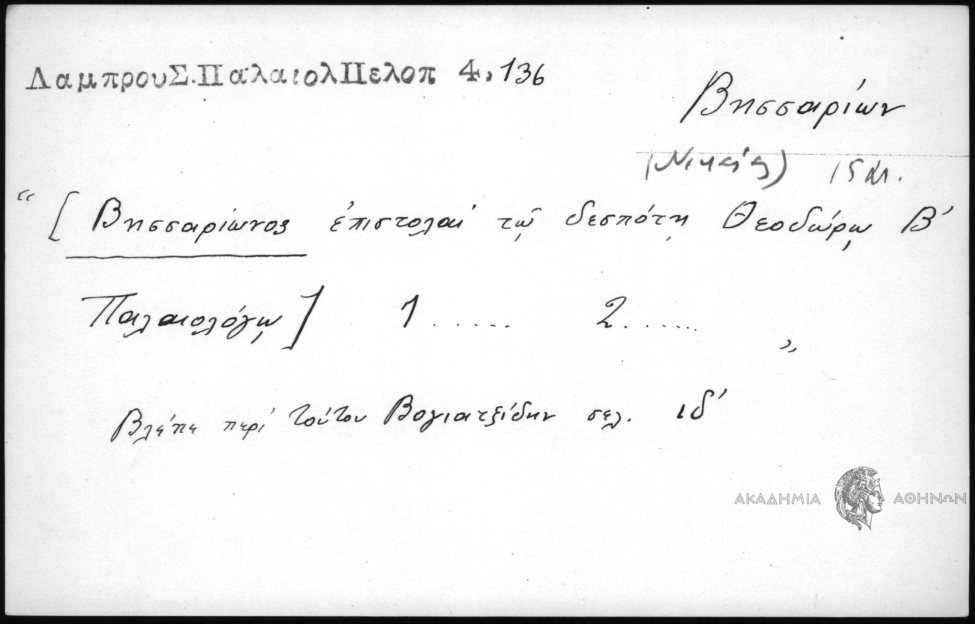 ΛαμπρουΣ.ΠαλαιολΠελοπ 4,136
Βησσαρίων
(Νικαίας) 15 αι.
“[Βησσαρίωνος ἐπιστολαί τῷ δεσπότῃ Θεοδώρῳ Β΄
Παλαιολόγῳ] 1...... 2...... ”
Βλέπε περί τούτου Βογιατζίδην σελ. ιδ΄
ΑΚΑΔΗΜΙΑ ΑΘΗΝΩΝ